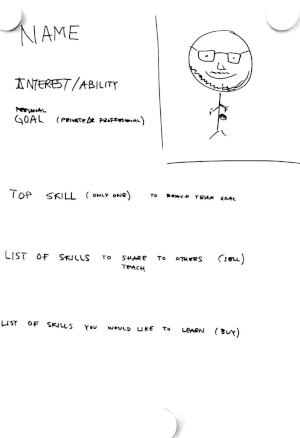 NAME
INTEREST/ABILITY
PERSONAL
GOAL (PRIVATE OR PROFFESIONAL)
TOP SKILL (ONLY ONE) TO REACH TEAM GOAL
LIST OF SKILLS TO SHARE TO OTHERS (SELL)
TEACH
LIST OF SKILLS YOU WOULD LIKE TO LEARN (BUY)